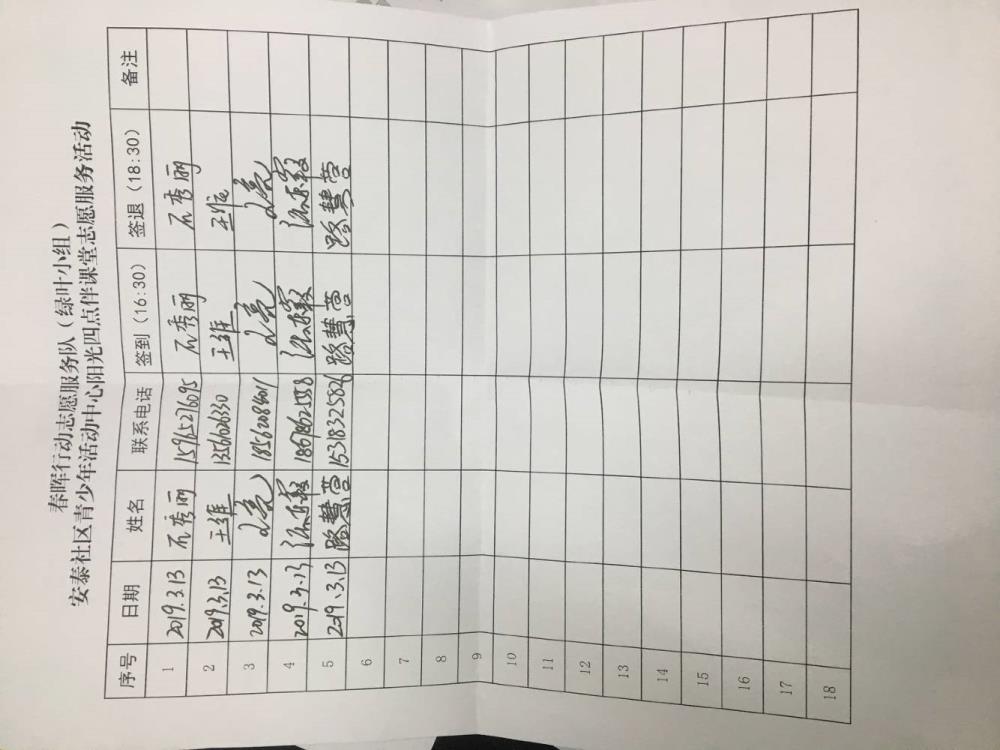 春晖行动志愿服务队（绿叶小组）
安泰社区青少年活动中心阳光四点伴课堂志愿服务活动
序号 日期 姓名 联系电话 签到（16:30） 签退（18:30） 备注
1 2019.3.13 秀丽 15965276095 秀丽 秀丽
2 2019.3.13 王维 13561026330 王维 王维
3 2019.3.13 亮 18562084011 亮 亮
4 2019.3.13 1867862558
5 2019.3.13 路慧营 15318325826 路慧营 路慧营
6
7
8
9
10
11
12
13
14
15
16
17
18